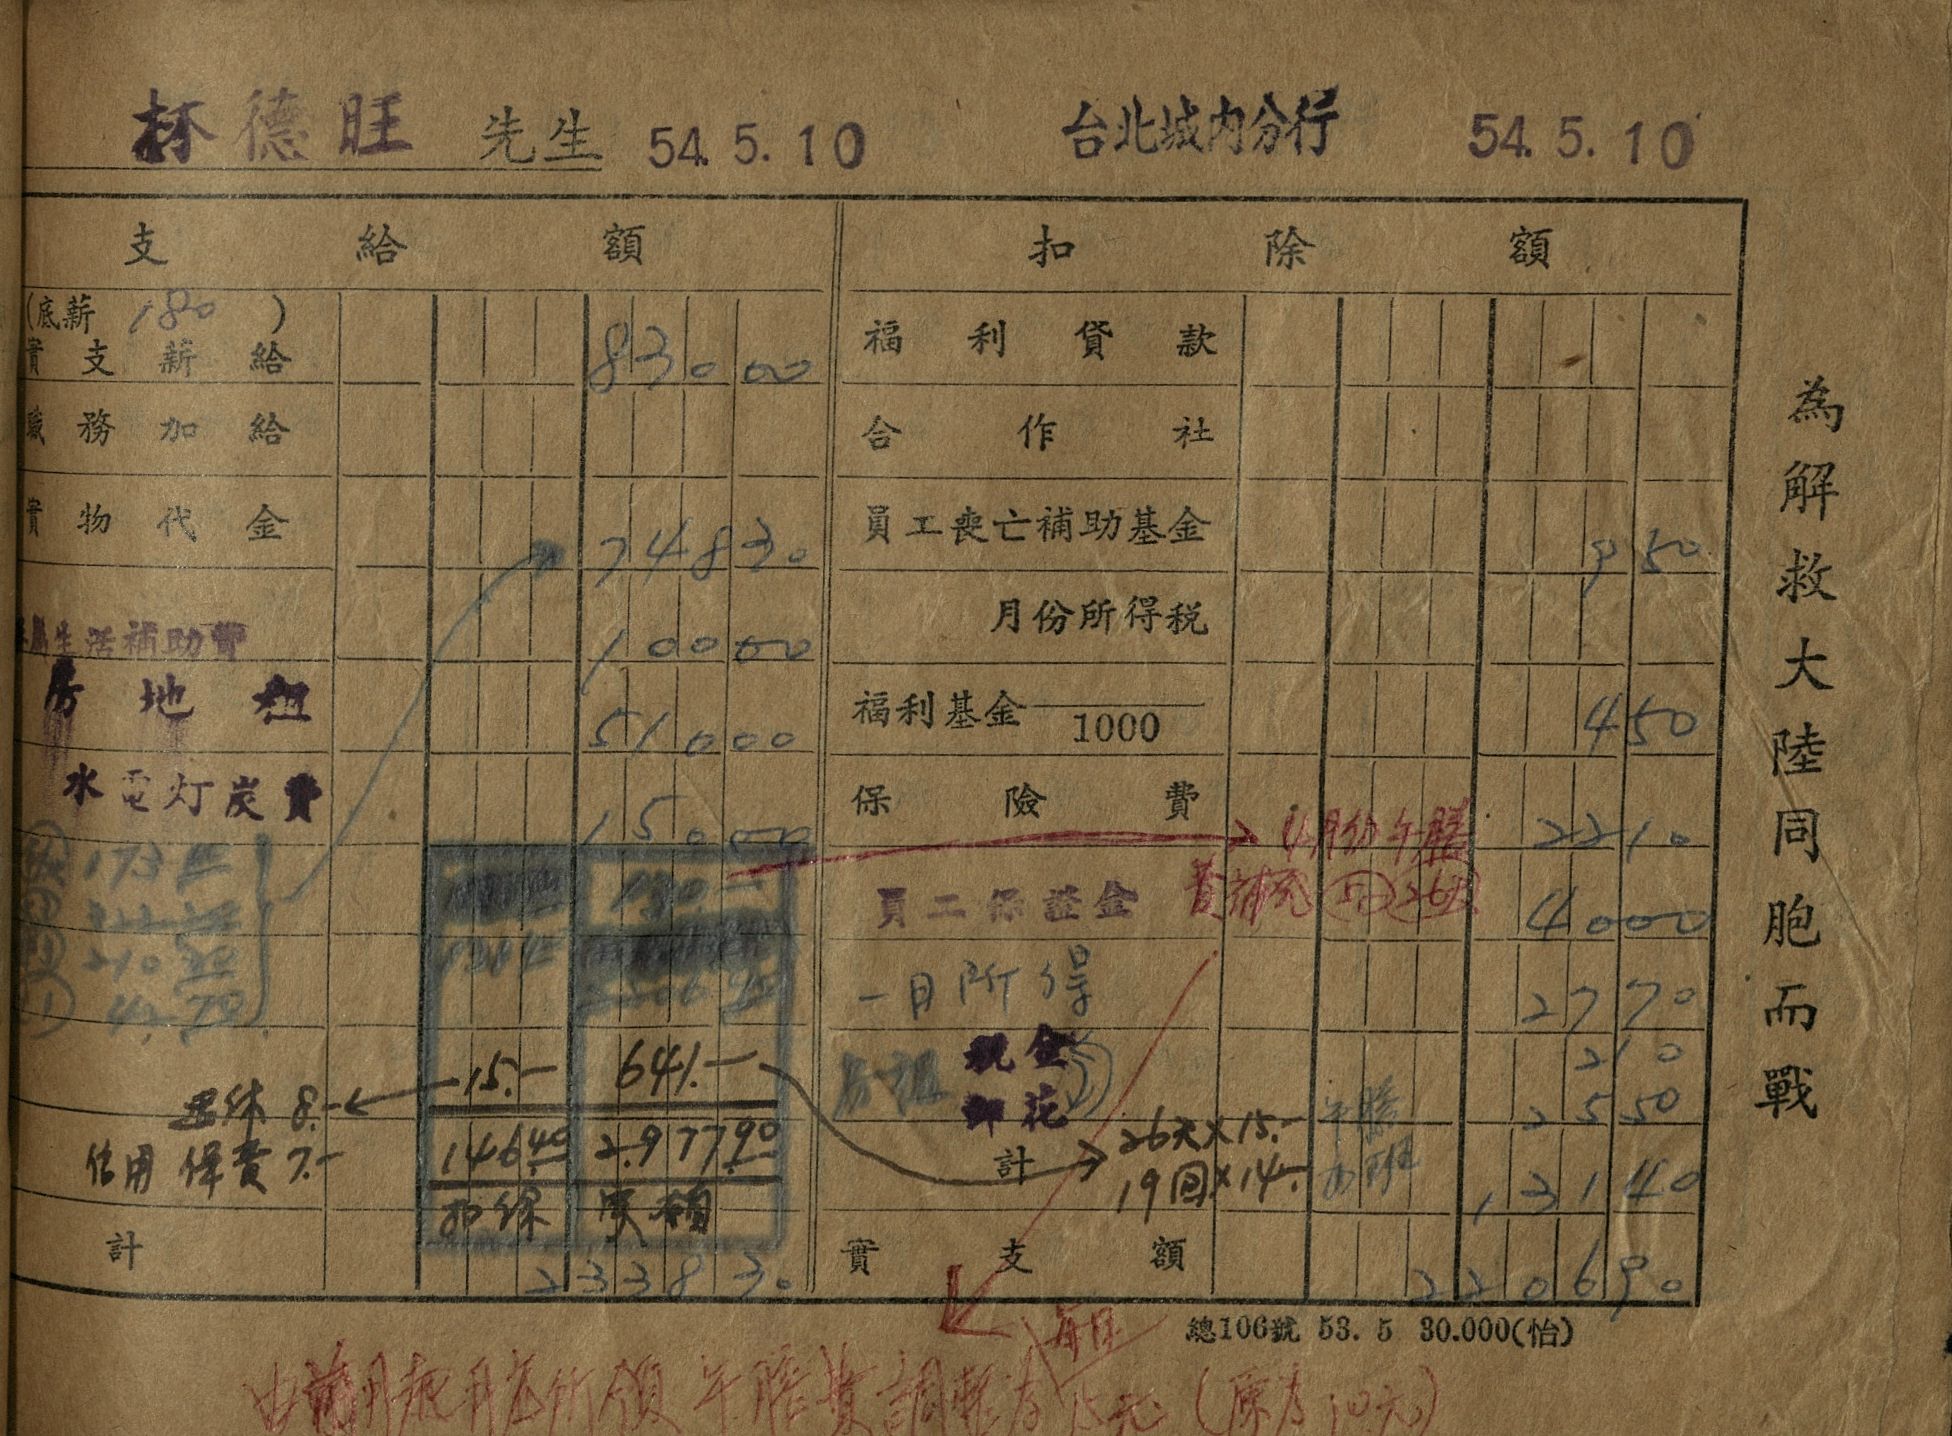 林德旺 先生 54.5.10 台北城內分行 54.5.10
支給額
(底薪 180 )
實支薪給 830 00
職務加給
實物代金 748 30
眷屬生活補助費 100 00
房地租 510 00
水電灯炭費 150 00
173
210 50
130-
15.- 641.-
眷保 8.-
信用保費 7.-
146.40 2.977.90
扣除 實領
計 2338 30
扣除額
福利貸款
合作社
員工喪亡補助基金 9 50
月份所得稅
福利基金 1000 4 50
保險費 22 10
4月份午膳
費補充 5 26天
員工保證金 40 00
一月所得 27 70
稅金 2 10
印花 25 50
計 131 40
26天×15.- 午膳
19回×14.- 加班
實支額 2206 90
總106號 53. 5 30.000(怡)
每日
月份所領午膳費調整為15元(原為10元)
為解救大陸同胞而戰